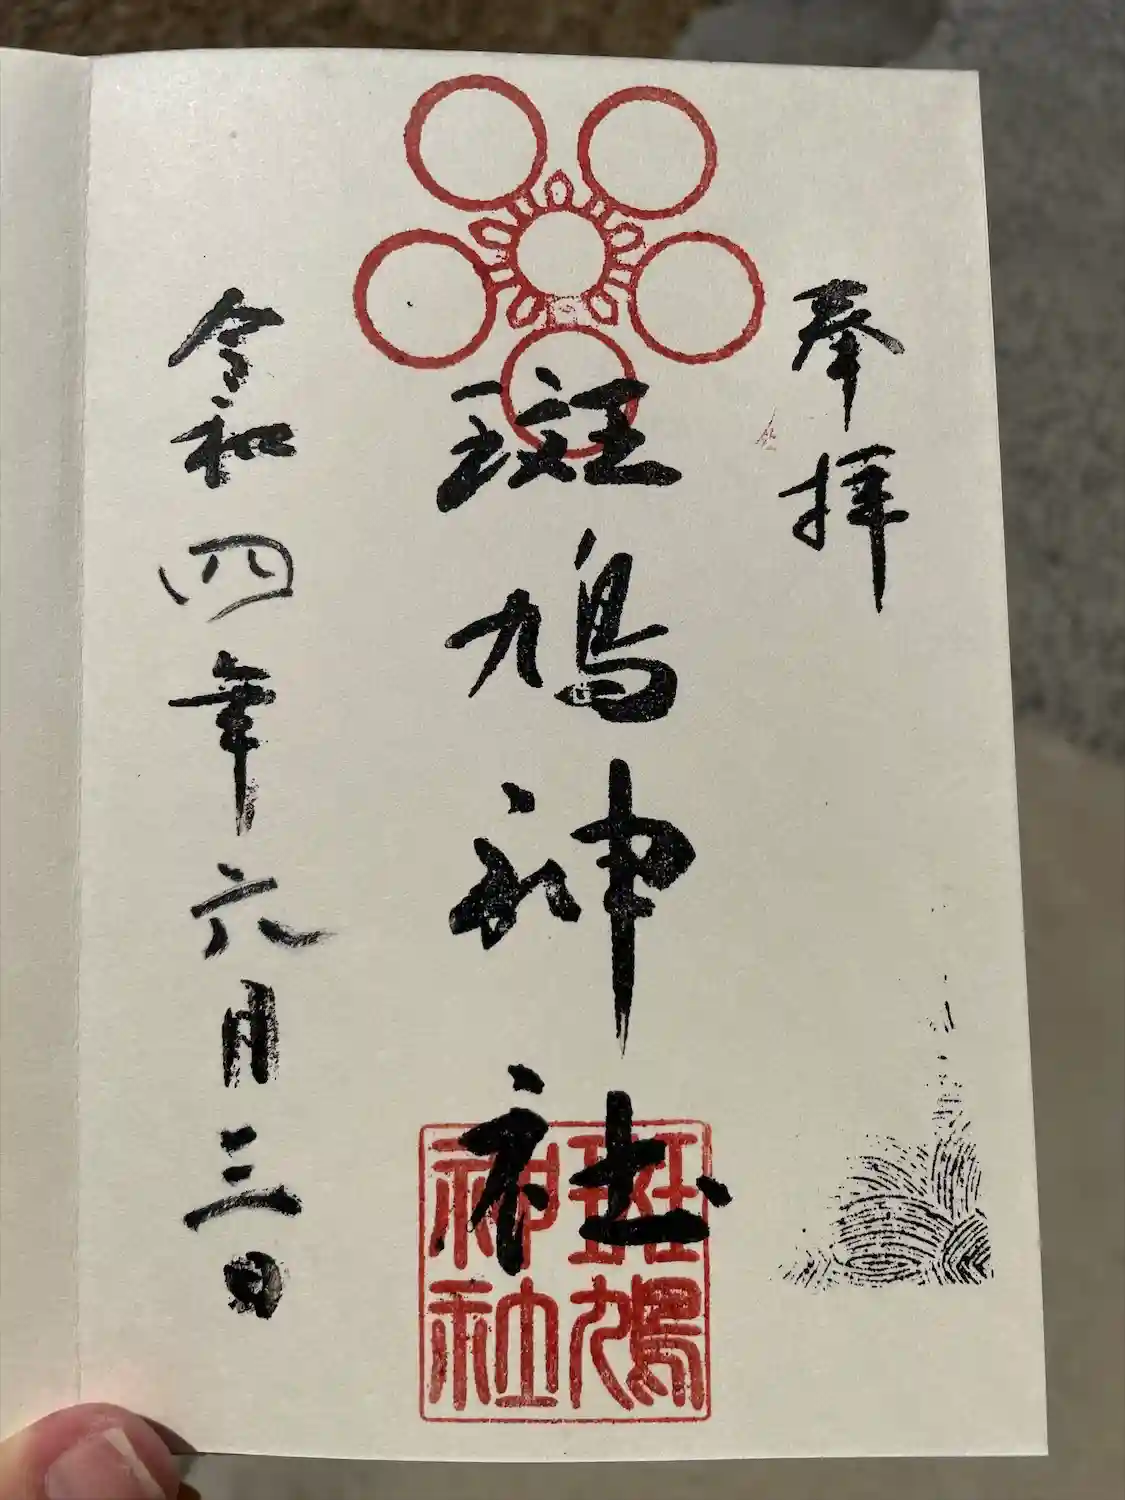 奉拝
斑鳩神社
斑鳩
神社
令和四年六月三日